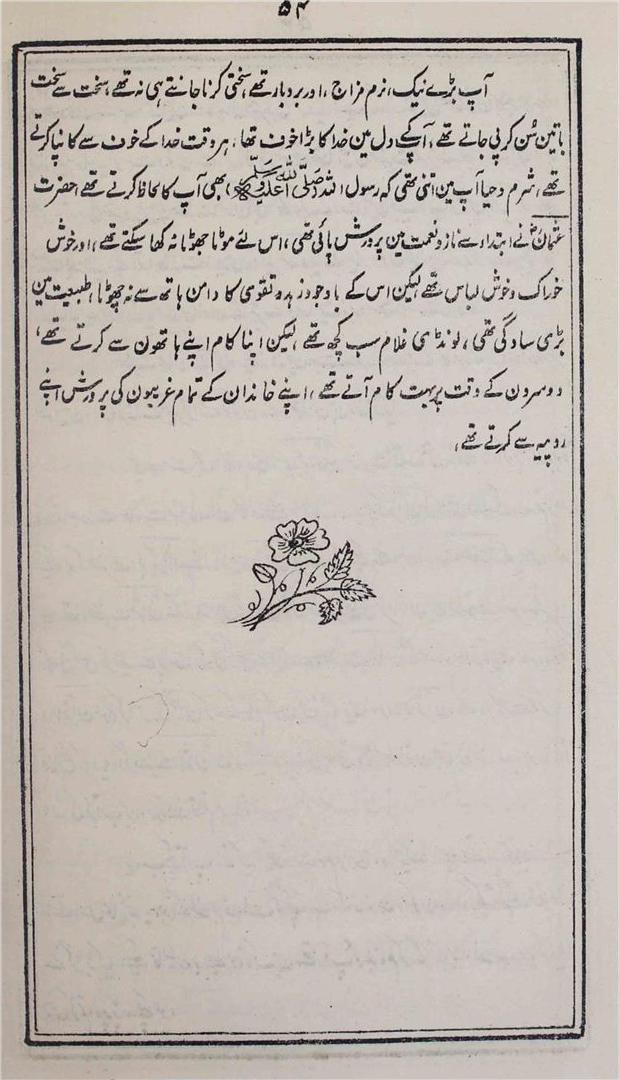 ۵۴
آپ بڑے نیک، نرم مزاج، اور بردبار تھے، سختی کرنا جانتے ہی نہ تھے، سخت سے سخت
باتین سُن کر پی جاتے تھے، آپکے دل مین خدا کا بڑا خوف تھا، ہر وقت خدا کے خوف سے کانپا کرتے
تھے، شرم و حیا آپ مین اتنی تھی کہ رسول اللہ (صَلَّی اللہُ عَلَیْہِ وَسَلَّم) بھی آپ کا لحاظ کرتے تھے، حضرت
عثمانؓ نے ابتداء سے ناز و نعمت مین پرورش پائی تھی، اس لئے موٹا جھوٹا نہ کھا سکتے تھے، اور خوش
خوراک و خوش لباس تھے لیکن اس کے باوجود زہد و تقوی کا دامن ہاتھ سے نہ چھوٹا، طبیعت مین
بڑی سادگی تھی، لونڈی غلام سب کچھ تھے، لیکن اپنا کام اپنے ہاتھون سے کرتے تھے،
دوسرون کے وقت پر بہت کام آتے تھے، اپنے خاندان کے تمام غریبون کی پرورش اپنے
روپیہ سے کرتے تھے،